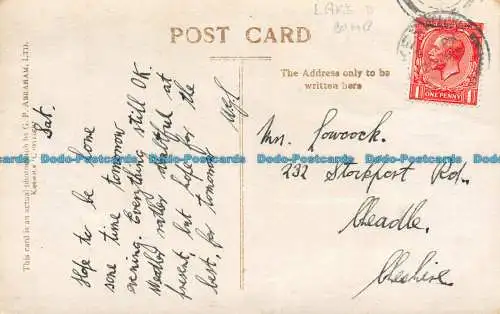 LAKE D
POST CARD
The Address only to be
written here
ONE PENNY
This card is an actual photograph by G. P. ABRAHAM, LTD.
Keswick
Sat.
Hope to be home
some time tomorrow
evening. Everything still OK.
Weather rather doubtful at
present, but hope for the
best, for tomorrow.
Mr. Lowcock.
232 Stockport Rd.,
Cheadle,
Cheshire
Dodo-Postcards Dodo-Postcards Dodo-Postcards Dodo-Postcards Dodo-Postcards